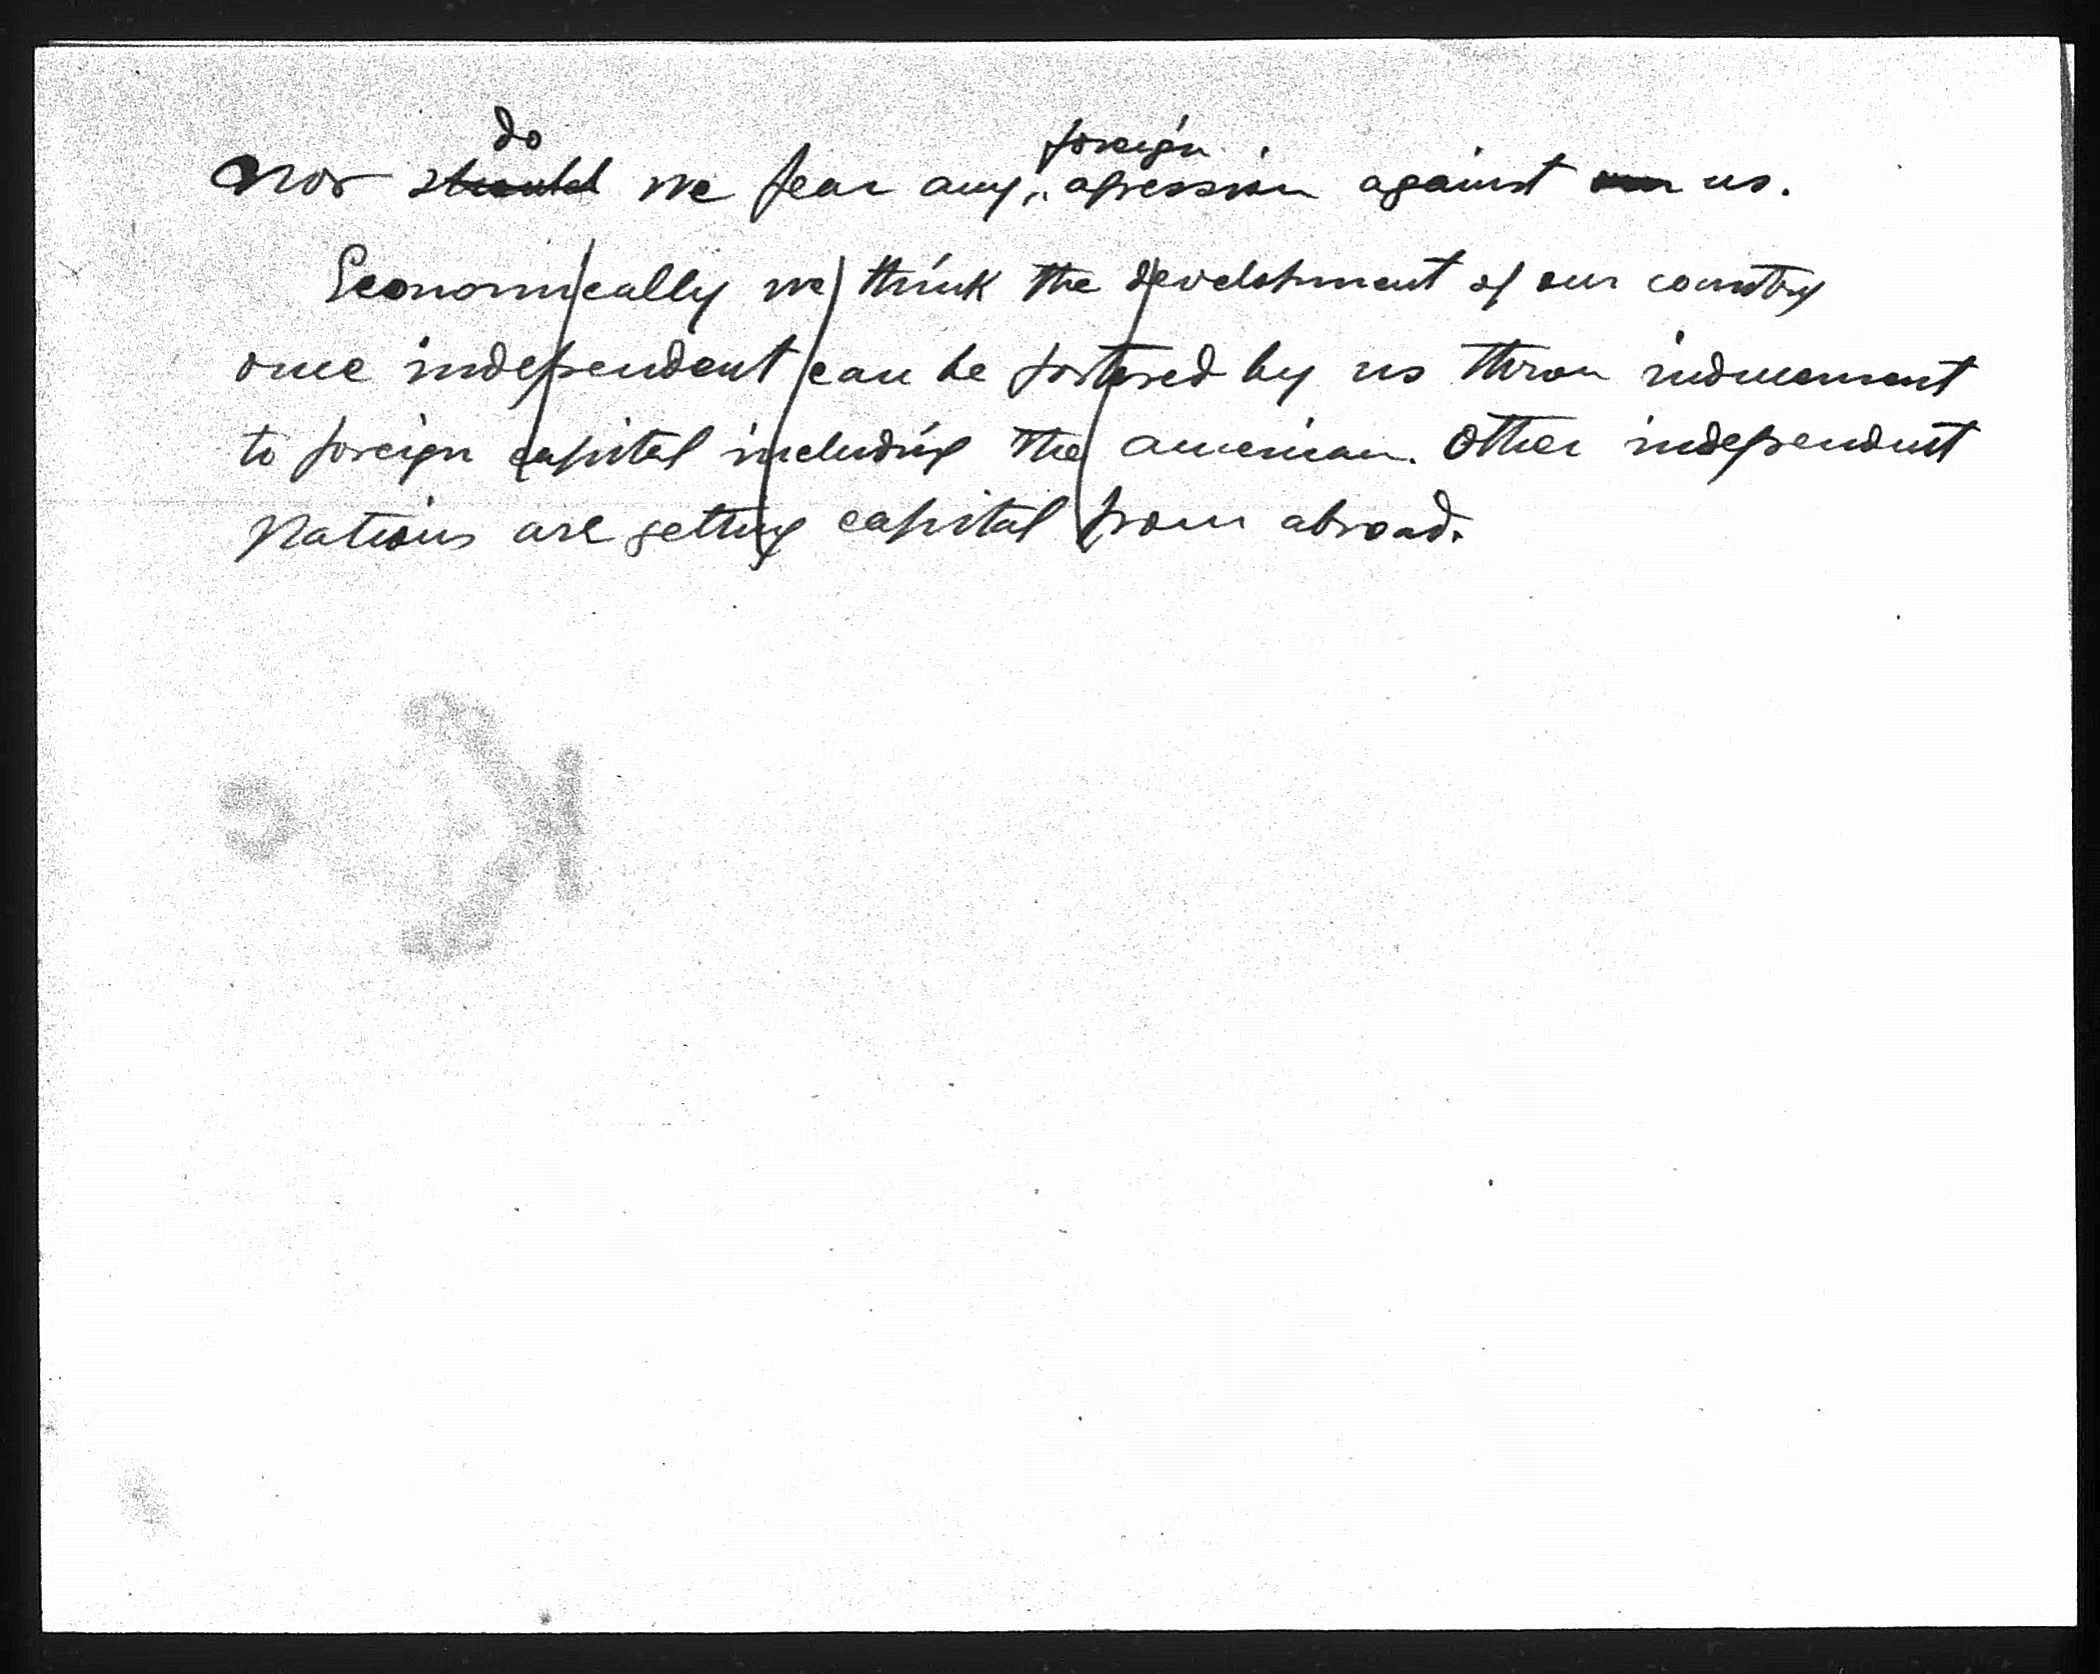 do foreign
Nor should we fear any agression against us.
Economically we think the development of our country
once independent can be fostered by us throu inducement
to foreign capital including the american. Other independent
Nations are getting capital from abroad.